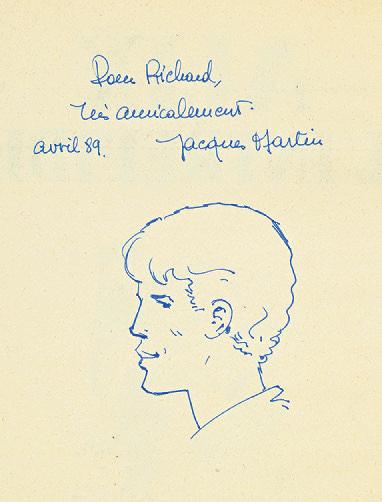 Pour Richard,
très amicalement.
avril 89. Jacques Martin